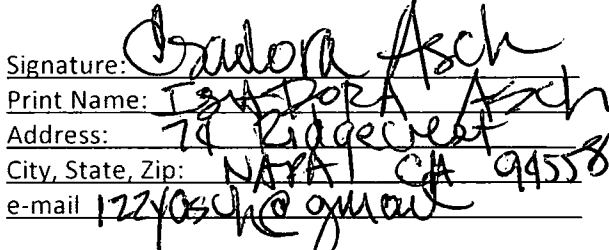 Signature: Isadora Asch
Print Name: ISADORA Asch
Address: 74 Ridgecrest
City, State, Zip: NAPA CA 94558
e-mail izzyasch@gmail